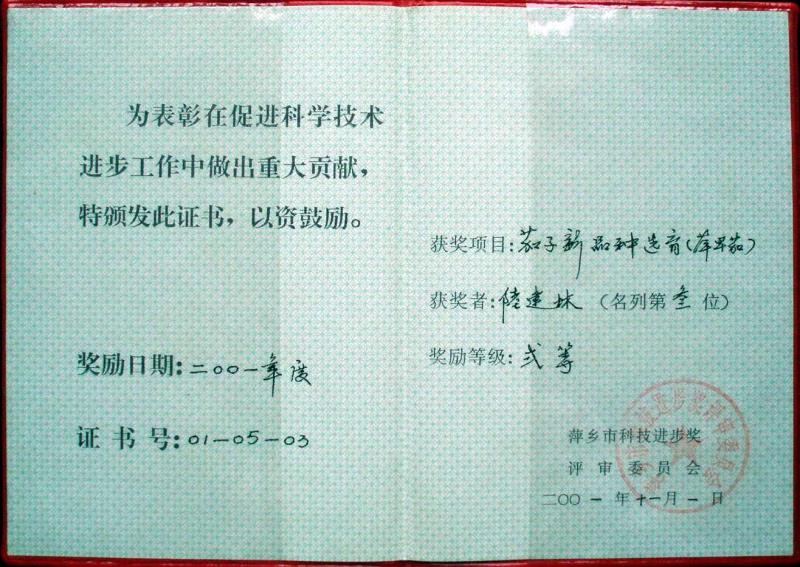 为表彰在促进科学技术
进步工作中做出重大贡献，
特颁发此证书，以资鼓励。
奖励日期：二〇〇一年度
证书号：01-05-03
获奖项目：茄子新品种选育（萍早茄）
获奖者：陆建林（名列第叁位）
奖励等级：弍等
萍乡市科技进步奖
评审委员会
二〇〇一年十一月一日